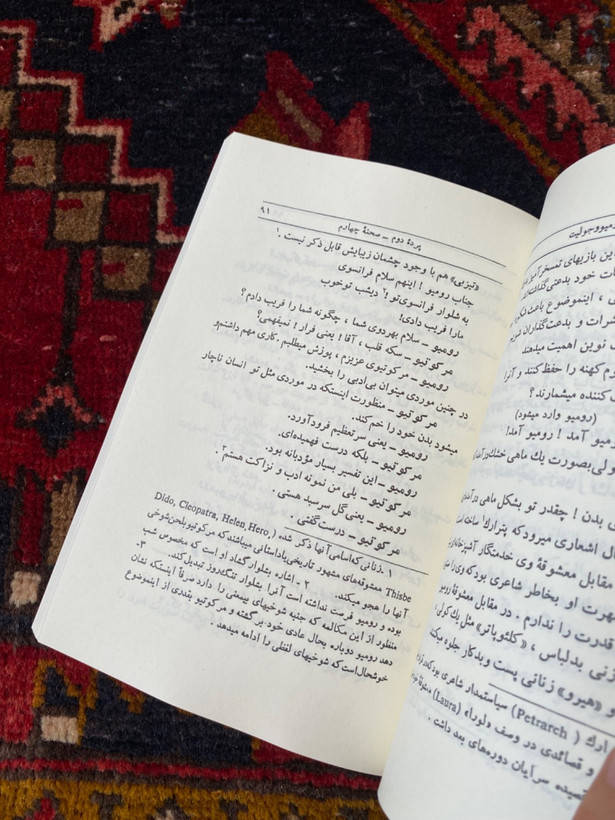 ۹۱
پردهٔ دوم ــ صحنهٔ چهارم
«تیزبی» هم با وجود چشمان زیبایش قابل ذکر نیست . ۱
جناب رومیو ! اینهم سلام فرانسوی
به شلوار فرانسوی‌تو !
دیشب توخوب
مارا فریب دادی!
رومیو ــ سلام بهردوی شما ، چگونه شما را فریب دادم ؟
مرکوتیو ــ سکه قلب ، آقا ! یعنی فرار ! نمیفهمی؟
رومیو ــ مرکوتیوی عزیزم ، پوزش میطلبم .کاری مهم داشتم‌و
در چنین موردی میتوان بی‌ادبی را بخشید.
مرکوتیو ــ منظورت اینستکه در موردی مثل تو انسان ناچار
میشود بدن خود را خم کند.
رومیو ــ یعنی سرتعظیم فرودآورد.
مرکوتیو ــ بلکه درست فهمیده‌ای.
رومیو ــ این تفسیر بسیار مؤدبانه بود.
مرکوتیو ــ بلی من نمونه ادب و نزاکت هستم .
رومیو ــ یعنی گل سرسبد هستی .
مرکوتیو ــ درست گفتی .
۱ ــ زنانی‌که‌اسامی آنها ذکر شده (Dido, Cleopatra, Helen, Hero,
Thisbe معشوقه‌های مشهور تاریخی‌یاداستانی میباشندکه مرکوتیو بالحن‌شوخی
آنها را هجو میکند. ۲ ــ اشاره بشلوار گشاد او است که مخصوص شب
بوده و رومیو فرصت نداشته است آنرا بشلوار تنگ‌روز تبدیل‌کند. ۳ ــ
منظور از این مکالمه که جنبه شوخیهای بیمعنی را دارد صرفاً اینستکه نشان
دهد رومیو دوباره بحال عادی خود برگشته و مرکوتیو بقدری از اینموضوع
خوشحال‌است‌که شوخیهای لفظی را ادامه میدهد .
میووجولیت
این بازیهای تمسخرآمیز
خود بدعتی‌گذاشته‌اند
، اینموضوع باعث
و بدعت‌گذاران
نوین اهمیت میدهند
کهنه را حفظ‌کنند و آنرا
کننده میشمارند ؟
(رومیو وارد میشود)
میو آمد ! رومیو آمد!
ولی‌بصورت یك ماهی خشك‌درآمده
بدن ! چقدر تو بشکل ماهی درآمده
اشعاری میرودکه پترارك۱ ساخته‌است
مقابل معشوقهٔ وی خدمتگار آشپزخانه
او بخاطر شاعری بود که وی
قدرت را ندارم . در مقابل معشوقهٔ رومیو
زنی بدلباس ، «کلئوپاتر» مثل یك کولی
«هیرو» زنانی پست وبدکار جلوه میکنند
ارك (Petrarch) سیاستمدار شاعری بود
و قصائدی در وصف «لورا» (Laura) معشوقه
سرایان دوره‌های بعد داشت .